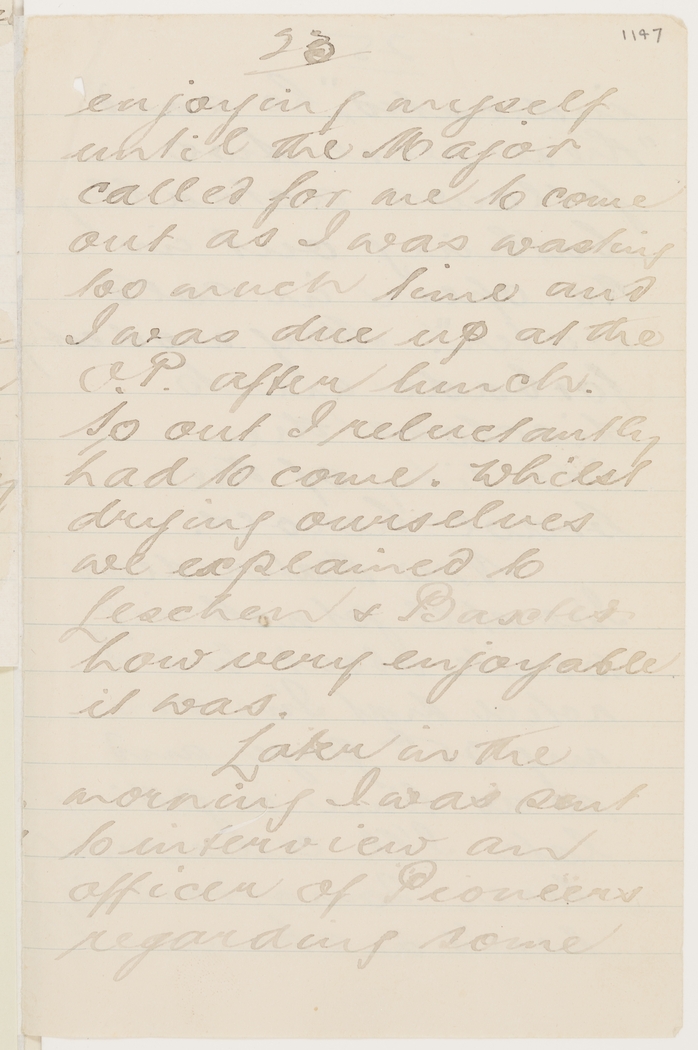 23
1147
enjoying myself
until the Major
called for me to come
out as I was wasting
too much time and
I was due up at the
O.P. after lunch.
So out I reluctantly
had to come. Whilst
drying ourselves
we explained to
Leschen & Baxter
how very enjoyable
it was.
Later in the
morning I was sent
to interview an
officer of Pioneers
regarding some